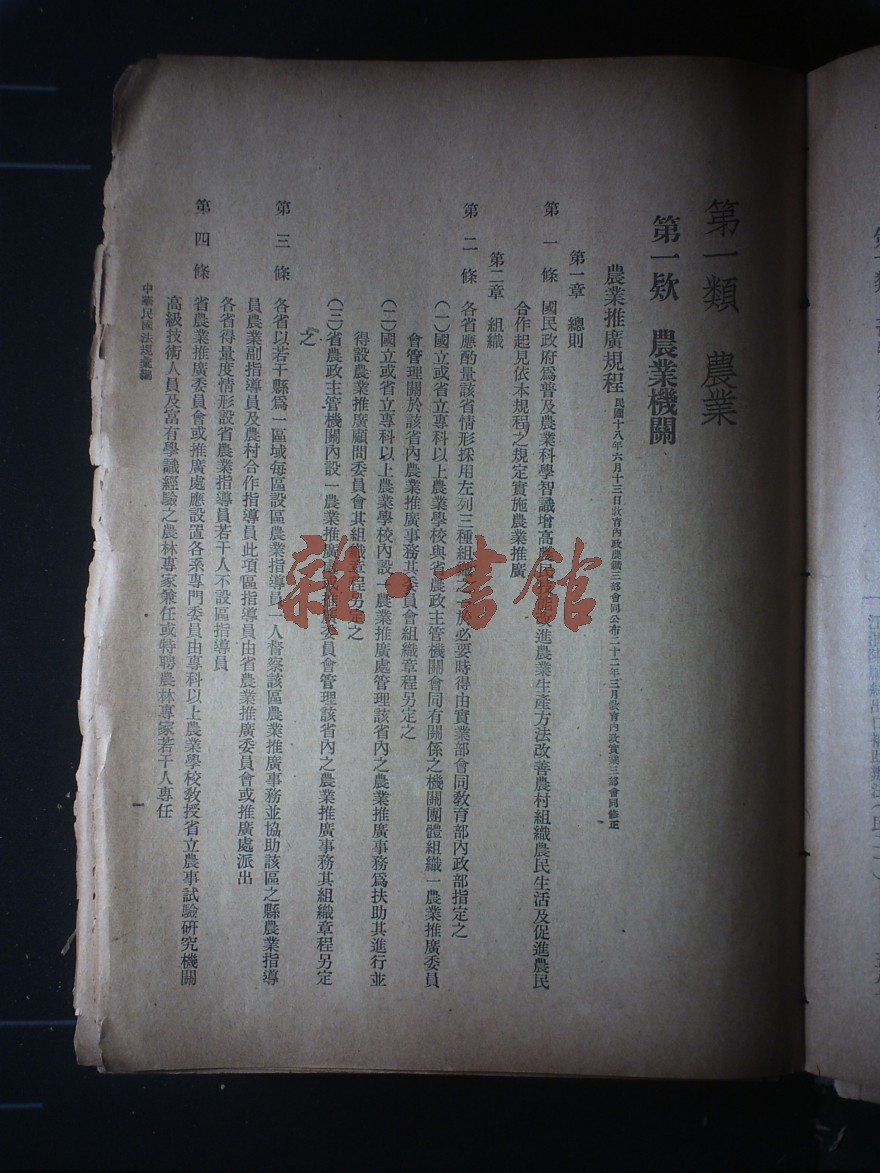 第一類 農業
第一欵 農業機關
農業推廣規程 民國十八年六月十三日敎育內政農鑛三部會同公布二十二年三月敎育內政實業三部會同修正
第一章 總則
第一條 國民政府爲普及農業科學智識增高農民技能改進農業生產方法改善農村組織農民生活及促進農民
合作起見依本規程之規定實施農業推廣
第二章 組織
第二條 各省應酌量該省情形採用左列三種組織之一於必要時得由實業部會同敎育部內政部指定之
(一)國立或省立專科以上農業學校與省農政主管機關會同有關係之機關團體組織一農業推廣委員
會管理關於該省內農業推廣事務其委員會組織章程另定之
(二)國立或省立專科以上農業學校內設一農業推廣處管理該省內之農業推廣事務爲扶助其進行並
得設農業推廣顧問委員會其組織章程另定之
(三)省農政主管機關內設一農業推廣處或推廣委員會管理該省內之農業推廣事務其組織章程另定
之
第三條 各省以若干縣爲一區域每區設區農業指導員一人督察該區農業推廣事務並協助該區之縣農業指導
員農業副指導員及農村合作指導員此項區指導員由省農業推廣委員會或推廣處派出
各省得量度情形設省農業指導員若干人不設區指導員
第四條 省農業推廣委員會或推廣處應設置各系專門委員由專科以上農業學校敎授省立農事試驗硏究機關
高級技術人員及富有學識經驗之農林專家兼任或特聘農林專家若干人專任
中華民國法規彙編
一
雜·書館